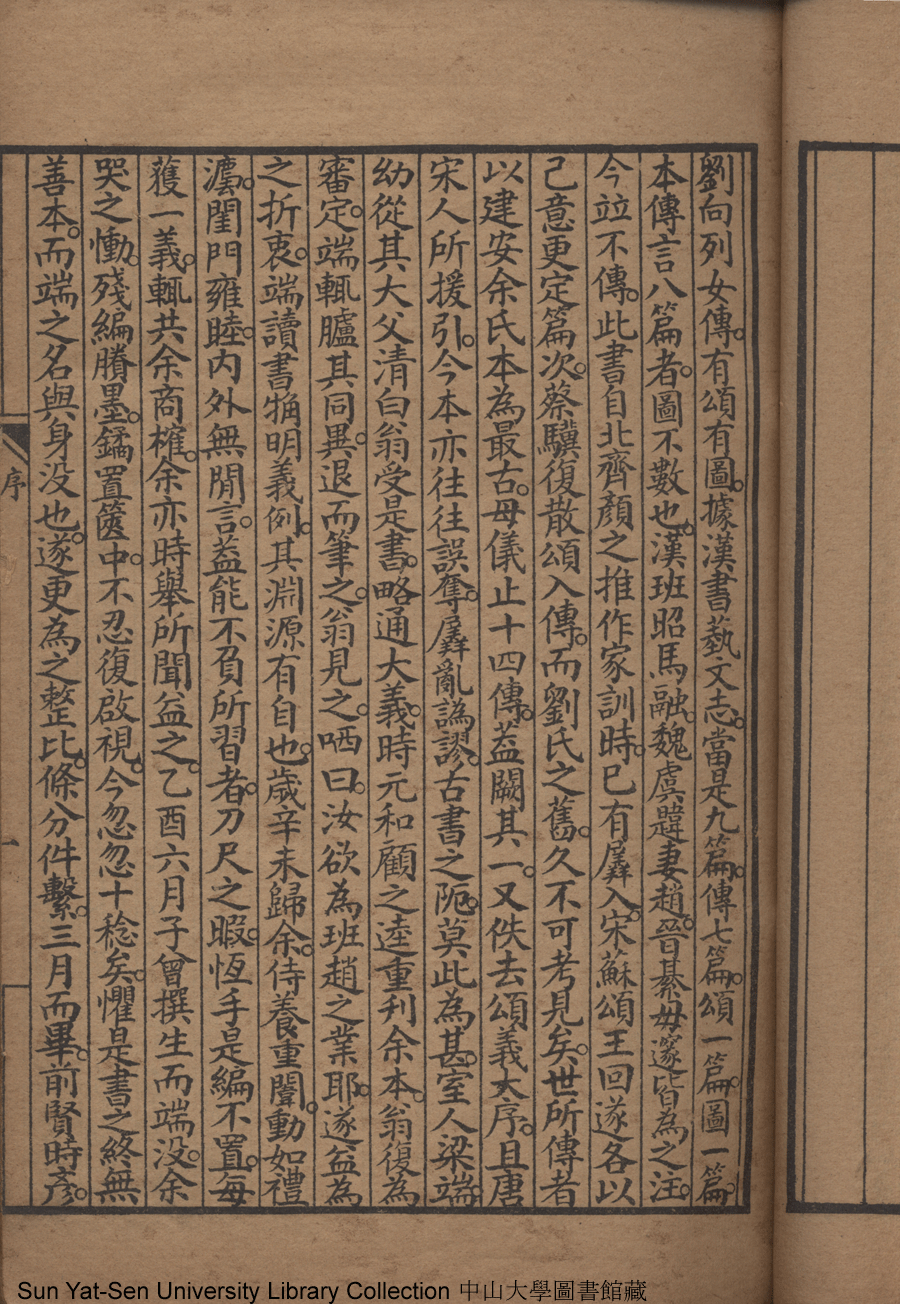 劉向列女傳。有頌有圖。據漢書藝文志。當是九篇。傳七篇。頌一篇。圖一篇。
本傳言八篇者。圖不數也。漢班昭馬融。魏虞韙妻趙。晉綦毋邃皆為之注。
今竝不傳。此書自北齊顏之推作家訓時。已有羼入。宋蘇頌王回遂各以
己意更定篇次。蔡驥復散頌入傳。而劉氏之舊。久不可考見矣。世所傳者
以建安余氏本為最古。母儀止十四傳。葢闕其一。又佚去頌義大序。且唐
宋人所援引。今本亦往往誤奪。羼亂譌謬。古書之阨。莫此為甚。室人梁端。
幼從其大父清白翁受是書。略通大義。時元和顧之逵重刋余本。翁復為
審定。端輒臚其同異。退而筆之。翁見之。哂曰。汝欲為班趙之業耶。遂益為
之折衷。端讀書觕明義例。其淵源有自也。歲辛未歸余。侍養重闈。動如禮
灋。閨門雍睦。內外無閒言。葢能不負所習者。刀尺之暇。恆手是編不置。每
獲一義。輒共余商榷。余亦時舉所聞益之。乙酉六月子曾撰生而端没。余
哭之慟。殘編賸墨。鐍置篋中。不忍復啟視。今忽忽十稔矣。懼是書之終無
善本。而端之名與身没也。遂更為之整比。條分件繫。三月而畢。前賢時彥。
序
一
Sun Yat-Sen University Library Collection 中山大學圖書館藏